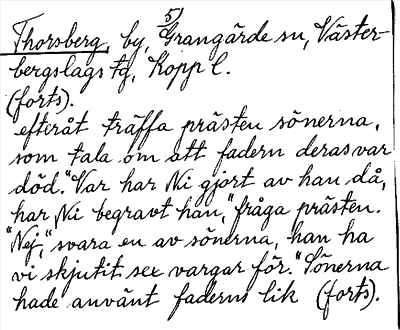 5)
Thorsberg, by, Grangärde sn, Väster-
bergslags tg, Kopp l.
(forts).
efteråt träffa prästen sönerna,
som tala om att fadern deras var
död. "Var har Ni gjort av han då,
har Ni begravt han," fråga prästen.
"Nej," svara en av sönerna, han ha
vi skjutit sex vargar för." Sönerna
hade använt faderns lik (forts).